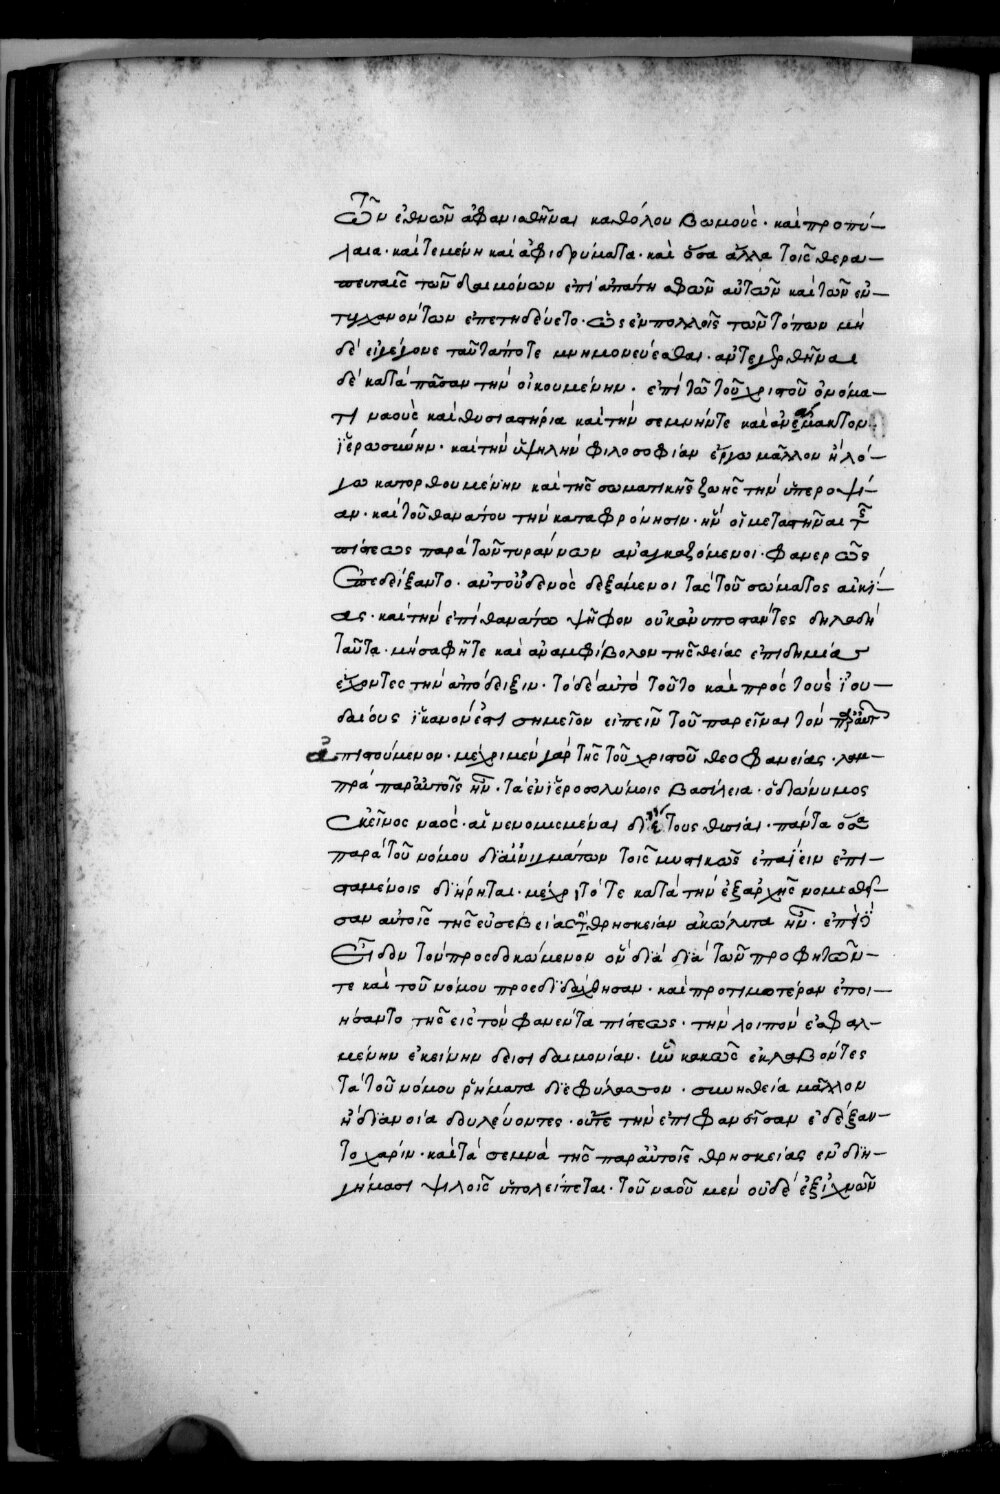 τῶν ἐθνῶν ἀφανισθῆναι καθόλου βωμούς· καὶ προπύ–
λαια· καὶ τεμένη καὶ ἀφιδρύματα· καὶ ὅσα ἄλλα τοῖς θερα–
πευταῖς τῶν δαιμόνων ἐπὶ ἀπάτη σφῶν αὐτῶν καὶ τῶν ἐν–
τυχανόντων ἐπετηδεύετο· ὡς ἐν πολλοῖς τῶν τόπων μὴ
δὲ εἰ γέγονε ταῦτα πότε μνημονεύεσθαι· ἀντεγερθῆναι
δὲ κατὰ πᾶσαν τὴν οἰκουμένην· ἐπὶ τῶ τοῦ χριστοῦ ὀνόμα–
τι ναοὺς καὶ θυσιαστήρια καὶ τὴν σεμνήν τε καὶ ἀναίμακτον
ἱερωσύνην· καὶ τὴν ὑψηλὴν φιλοσοφίαν ἔργω μᾶλλον ἢ λό–
γω κατορθουμένην καὶ τῆς σωματικῆς ζωῆς τὴν ὑπεροψί–
αν· καὶ τοῦ θανάτου τὴν καταφρόνησιν· ἣν οἱ μεταστῆναι τῆς
πίστεως παρὰ τῶν τυράννων ἀναγκαζόμενοι· φανερῶς
ἐπεδείξαντο· ἀντ οὐδενὸς δεξάμενοι τὰς τοῦ σώματος αἰκί–
ας· καὶ τὴν ἐπὶ θανάτω ψῆφον οὐκ ἂν ὑποστάντες δηλαδὴ
ταῦτα· μὴ σαφῆ τε καὶ ἀναμφίβολον τῆς θείας ἐπιδημίας
ἔχοντες τὴν ἀπόδειξιν· τὸ δὲ αὐτὸ τοῦτο καὶ πρὸς τοὺς ἰου–
δαίους ἱκανόν ἐστι σημεῖον εἰπεῖν τοῦ παρεῖναι τὸν παρ αὐτοῖς
ἀπιστούμενον· μέχρι μὲν γὰρ τῆς τοῦ χριστοῦ θεοφανείας· λαμ–
πρὰ παρ αὐτοῖς ἦν· τὰ ἐν ἱεροσολύμοις βασίλεια· ὁ διώνυμος
ἐκεῖνος ναός· αἱ νενομισμέναι δι ἔτους θυσίαι· πάντα ὅσα
παρὰ τοῦ νόμου δι αἰνιγμάτων τοῖς μυστικῶς ἐπαΐειν ἐπι–
σταμένοις διήρηται· μέχρι τότε κατὰ τὴν ἐξαρχῆς νομισθεῖ–
σαν αὐτοῖς τῆς εὐσεβείας τὴν θρησκείαν ἀκώλυτα ἦν· ἐπεὶ δὲ
εἶδον τὸν προσδοκώμενον ὃν διὰ διὰ τῶν προφητῶν–
τε καὶ τοῦ νόμου προεδιδάχθησαν· καὶ προτιμοτέραν ἐποι–
ήσαντο τῆς εἰς τὸν φανέντα πίστεως· τὴν λοιπὸν ἐσφαλ–
μένην ἐκείνην δεισιδαιμονίαν· ἣν κακῶς ἐκλαβόντες
τὰ τοῦ νόμου ῥήματα διεφύλασσον· συνηθεία μᾶλλον
ἢ διανοία δουλεύοντες· οὔτε τὴν ἐπιφανεῖσαν ἐδέξαν–
το χάριν· καὶ τὰ σεμνὰ τῆς παρ αὐτοῖς θρησκείας ἐν διη–
γήμασι ψιλοῖς ὑπολείπεται· τοῦ ναοῦ μὲν οὐδὲ ἐξ ἰχνῶν